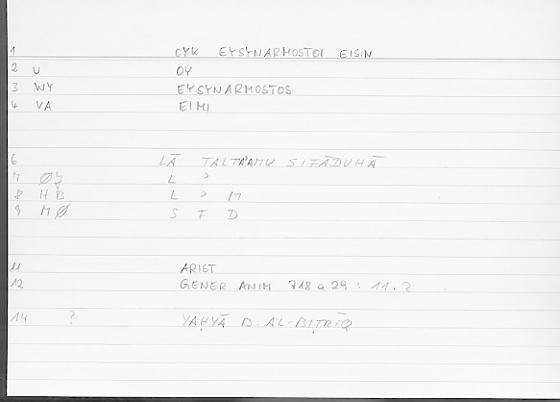 1 OYK EYSYNARMOSTOI EISIN
2 U OY
3 WY EYSYNARMOSTOS
4 VA EIMI
6 LĀ TALTAʾAMU SIFĀDUHĀ
7 L ʾ
8 H B L ʾ M
9 M Ø S F D
11 ARIST
12 GENER ANIM 718 a 29 : 11.2
14 ? YAḤYĀ B. AL-BIṬRĪQ